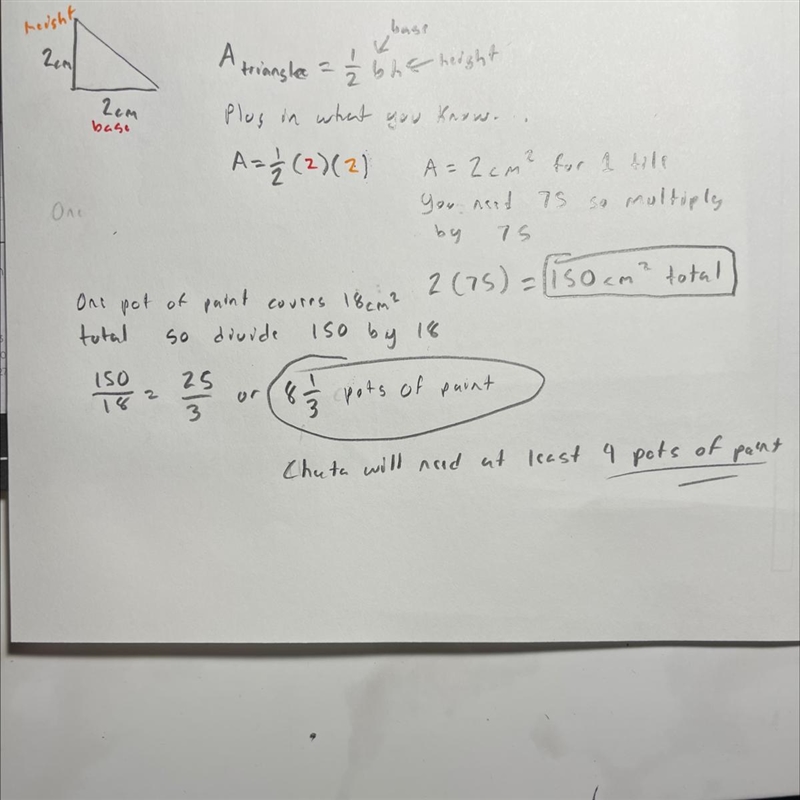 height
2cm
2cm
base
base
A triangle = 1/2 bh ← height
Plug in what you know..
A = 1/2 (2)(2)
A = 2cm² for 1 tile
you need 75 so multiply
by 75
One
2(75) = 150cm² total
One pot of paint covers 18cm²
total so divide 150 by 18
150/18 = 25/3 or 8 1/3 pots of paint
Chuta will need at least 9 pots of paint